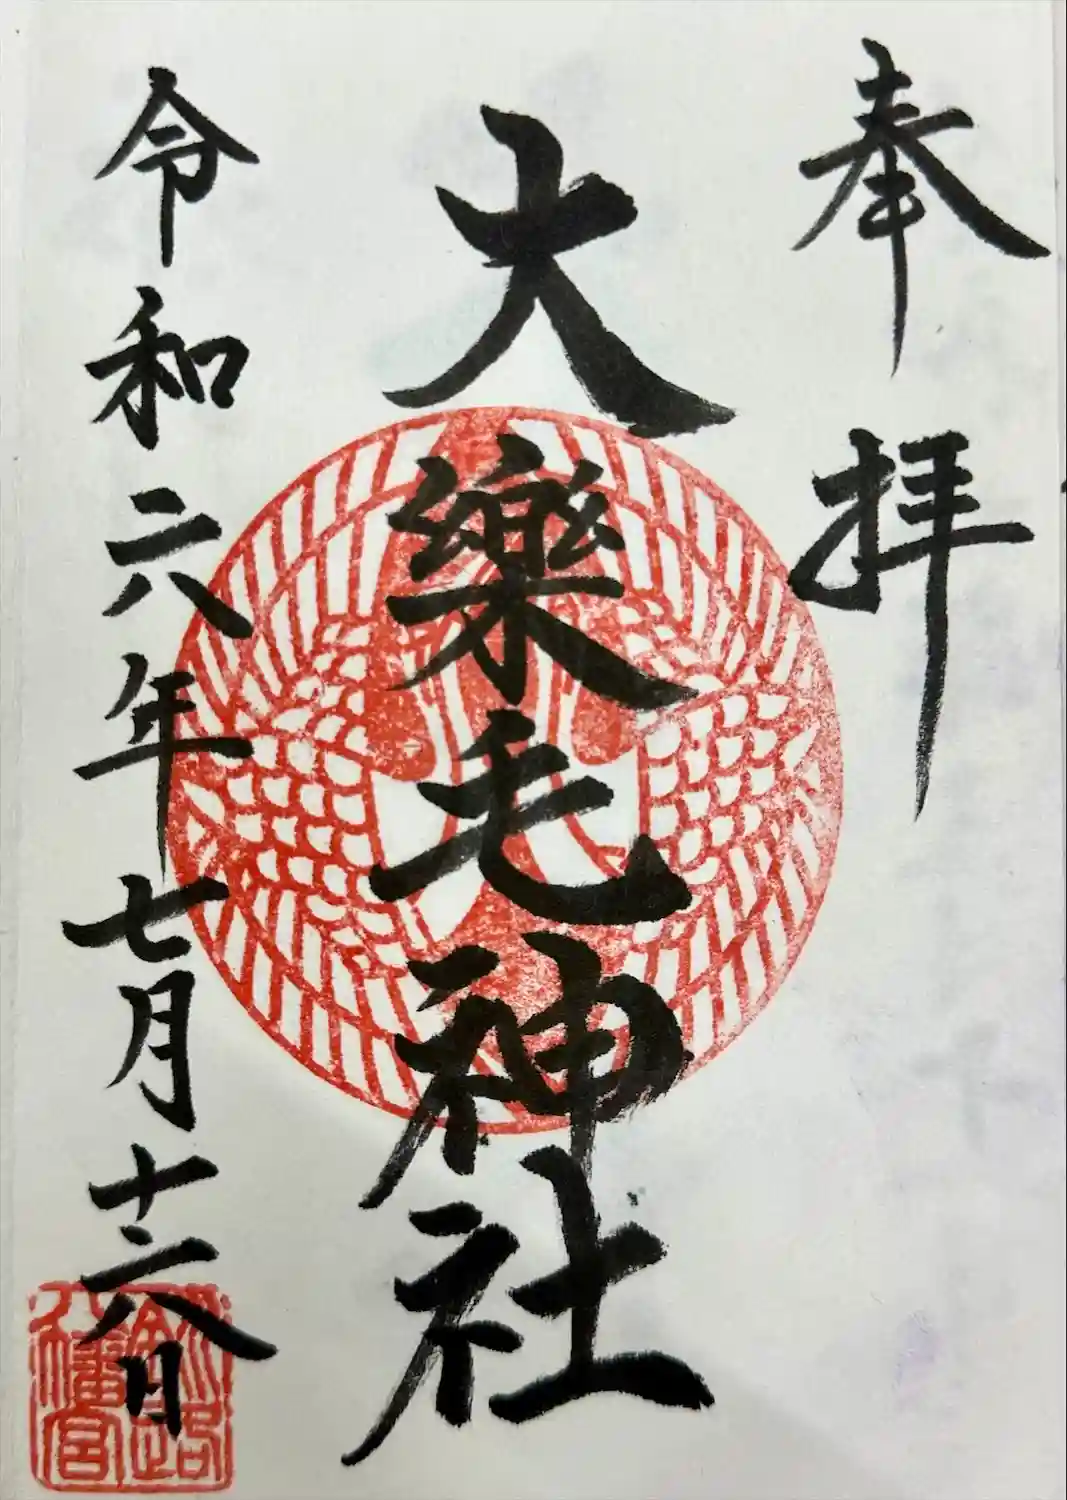 奉拝
大樂毛神社
令和六年七月十六日
八幡宮